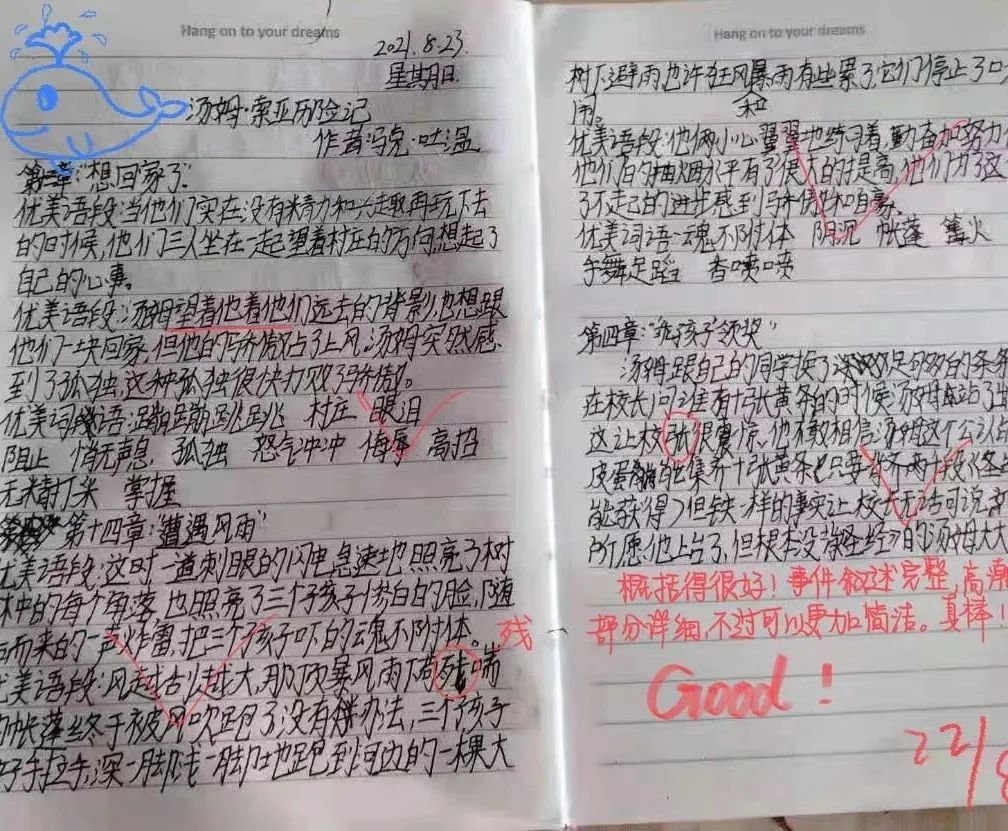 Hang on to your dreams
2021.8.23.
星期日.
汤姆·索亚历险记
作者:马克·吐温.
"想回家了"
优美语段:当他们实在没有精力和兴趣再玩下去
的时候,他们三人坐在一起望着村庄的方向,想起了
自己的心事。
优美语段:汤姆望着他着他们远去的背影,也想跟
他们一块回家,但他的骄傲占了上风,汤姆突然感
到了孤独,这种孤独很快打败了骄傲。
优美词语:蹦蹦跳跳 村庄 眼泪
阻止 悄无声息 孤独 怒气冲冲 侮辱 高招
无精打采 掌握
第十四章:"遭遇风雨"
优美语段:这时一道刺眼的闪电急速地照亮了树
林中的每个角落,也照亮了三个孩子惨白的脸,随
而来的一声炸雷,把三个孩子吓的魂不附体。
残
优美语段:风越刮越大,那顶暴风雨下苟 喘
的帐篷终于被风吹跑了,没有办法,三个孩子
好手拉手,深一脚浅一脚地跑到河边的一棵大
Hang on to your dreams
树下避雨,也许狂风暴雨有些累了,它们停止了
闹。
和
优美语段:他俩小心翼翼地练习着,勤奋加努力
他们后的抽烟水平有了很大的提高,他们为了这
了不起的进步感到骄傲和自豪。
优美词语:魂不附体 阴沉 帐篷 篝火
手舞足蹈 香喷喷
第四章:"坏孩子"领奖
汤姆跟自己的同学换了足够多的条
在校长问谁有十张黄条的时候,汤姆站了
这让校 很震惊,他不敢相信汤姆这个公认
皮蛋能集齐十张黄条(只要背不两千段《圣
能获得)但铁一样的事实让校长无话可说,
所愿他上台了,但根本没 的汤姆大
概括得很好!事件叙述完整,高潮
部分详细,不过可以更加简洁。真棒!
Good!
22/8